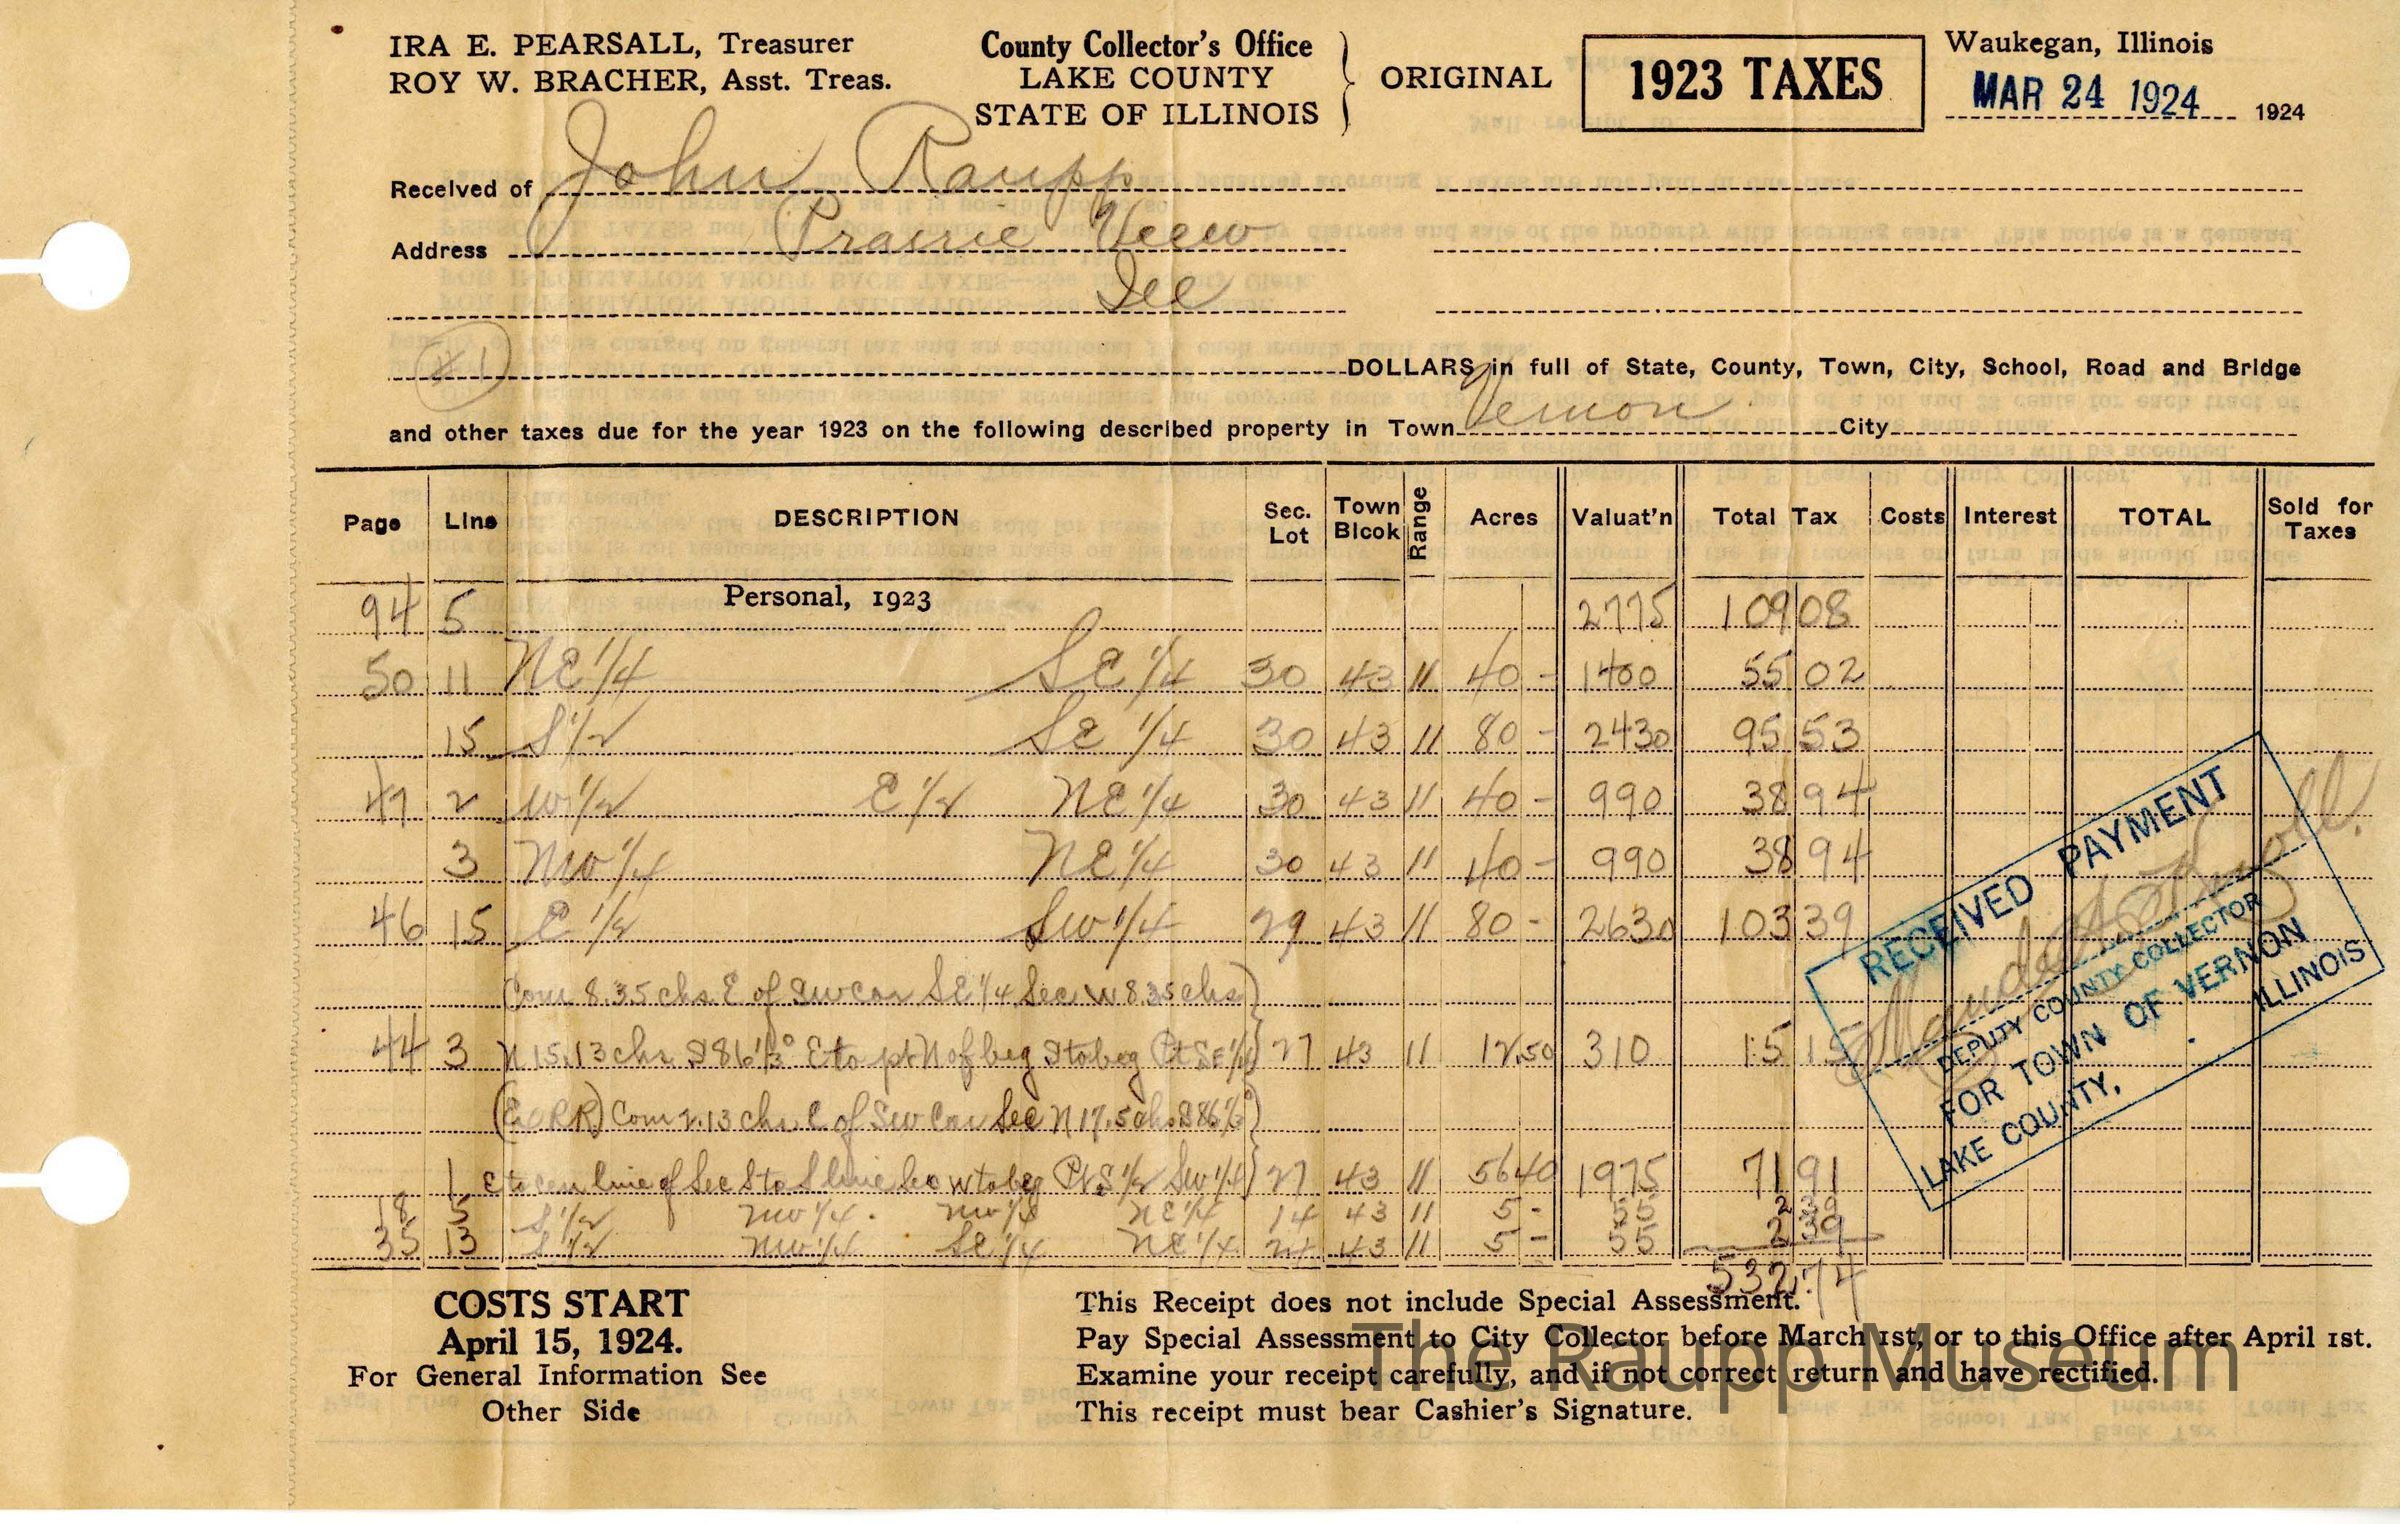 IRA E. PEARSALL, Treasurer
ROY W. BRACHER, Asst. Treas.
County Collector's Office
LAKE COUNTY
STATE OF ILLINOIS
ORIGINAL
1923 TAXES
Waukegan, Illinois
MAR 24 1924 1924
Received of John Raupp
Address Prairie View
Ill
#1
DOLLARS in full of State, County, Town, City, School, Road and Bridge
and other taxes due for the year 1923 on the following described property in Town Vernon City
Page Line DESCRIPTION Sec. Lot Town Blcok Range Acres Valuat'n Total Tax Costs Interest TOTAL Sold for Taxes
94 5 Personal, 1923 2775 109 08
50 11 NE 1/4 SE 1/4 30 43 11 40 - 1400 55 02
15 S 1/2 SE 1/4 30 43 11 80 - 2430 95 53
47 2 W 1/2 E 1/2 NE 1/4 30 43 11 40 - 990 38 94
3 NW 1/4 NE 1/4 30 43 11 40 - 990 38 94
46 15 E 1/2 SW 1/4 29 43 11 80 - 2630 103 39
Com 8.35 chs. E of SW cor SE 1/4 Sec W 8.35 chs
44 3 N 15.13 chs S 86 1/3° E to pt N of beg S to beg Pt SE 1/4 27 43 11 12.50 310 15 15
(E of RR) Com 2.13 chs. E of SW Cor Sec N 17.50 chs S 86 1/3°
1 E to cen line of Sec S to S line Sec W to beg Pt S 1/2 SW 1/4 27 43 11 56 40 1975 71 91
18 5 S 1/2 NW 1/4 NW 1/4 NE 1/4 14 43 11 5 - 55 2 39
35 13 S 1/2 NW 1/4 SE 1/4 NE 1/4 24 43 11 5 - 55 2 39
532.74
RECEIVED PAYMENT
DEPUTY COUNTY COLLECTOR
FOR TOWN OF VERNON
LAKE COUNTY, ILLINOIS
COSTS START
April 15, 1924.
For General Information See
Other Side
This Receipt does not include Special Assessment.
Pay Special Assessment to City Collector before March 1st, or to this Office after April 1st.
Examine your receipt carefully, and if not correct return and have rectified.
This receipt must bear Cashier's Signature.
The Raupp Museum